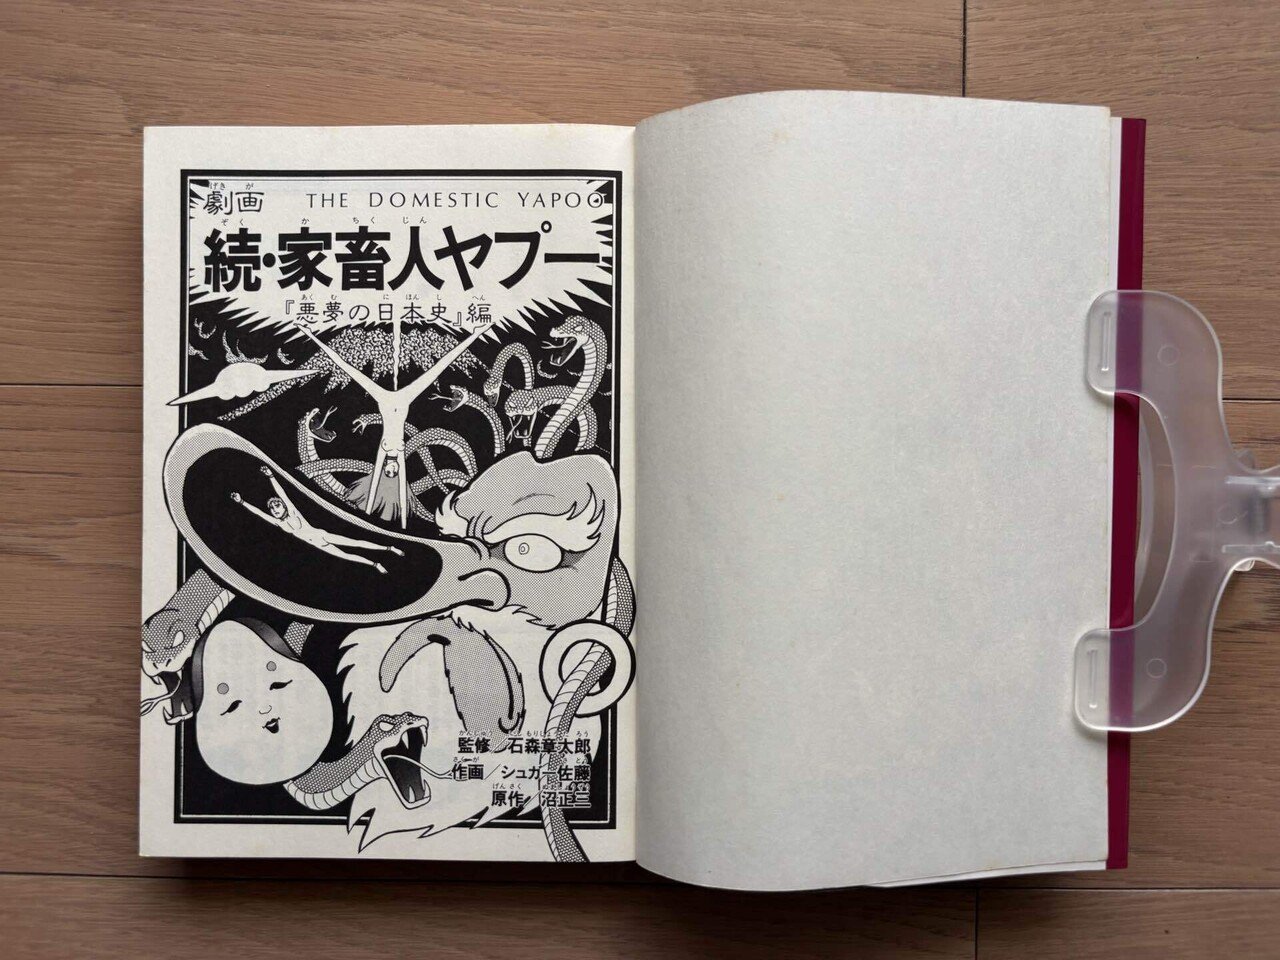 劇画 THE DOMESTIC YAPOO
続・家畜人ヤプー
『悪夢の日本史』編
監修／石森章太郎
作画／シュガー佐藤
原作／沼正三